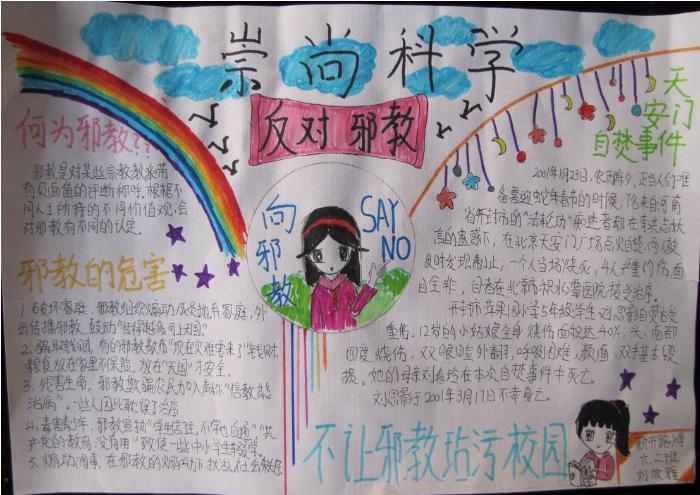 崇尚科学
反对邪教
何为邪教??
邪教是对某些宗教教派带
有负面值的评断称呼.根据不
同人士所持的不同价值观.会
对邪教有不同的认定.
邪教的危害
1.破坏家庭，邪教组织煽动成员抛弃家庭，外
出传播邪教、鼓动
2.骗取钱财，有的邪教散布"现在灾难要来了"钱财
粮食放在家里不保险，放在"天国"才安全.
3.残害生命，邪教欺骗农民加入声称"信教能
治病".一些人因此耽误了治病
4.毒害青少年，邪教宣扬"学生信注，不学也自通""共
产党的教育，没有用"致使一些中小学生辍学.
5.煽动闹事，在邪教的煽动下
向邪教
SAY
NO
天
安门
自焚事件
2001年1月23日，农历除夕，正当人们准
备喜迎蛇年春节的时候，7名来自河南
省开封市的"法轮功"痴迷者却在
言的蛊惑下，在北京天安门广场点火自焚，两人被
及时发现制止，一个人当场烧死，4人严重灼伤，面
目全非，目者在北京市积水潭医院接受治疗.
开封市苹果园小学5年级学生刘思影自焚后
重伤.12岁的小姑娘全身烧伤面积达40%，头、面部
四度烧伤，双眼睑外翻，呼吸困难，
她的母亲刘春玲在本次自焚事件中死亡.
刘思影于2001年3月17日不幸身亡.
不让邪教玷污校园
新开路小学
六二班